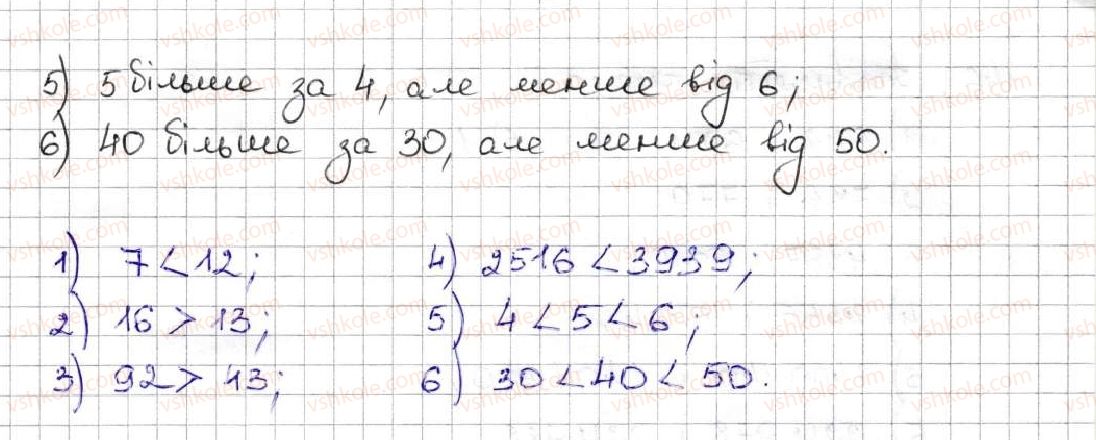 5) 5 більше за 4, але менше від 6;
6) 40 більше за 30, але менше від 50.
1) 7 < 12;
2) 16 > 13;
3) 92 > 43;
4) 2516 < 3939;
5) 4 < 5 < 6;
6) 30 < 40 < 50.